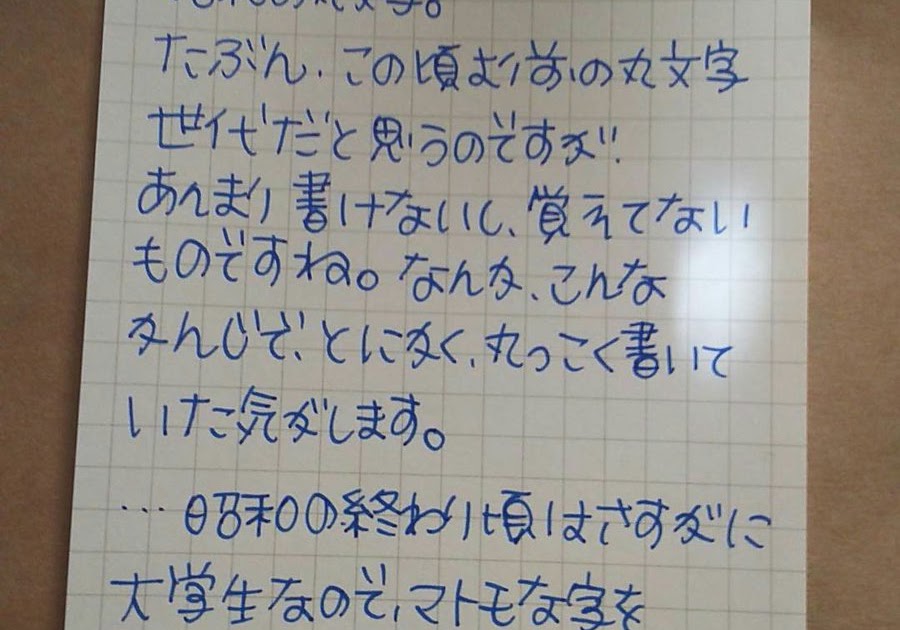 たぶん、この頃む)前の丸文字
世代だと思うのですが、
あんまり書けないし、覚えてない
ものですね。なんか、こんな
かんじで、とにかく、丸っこく書いて
いた気がします。
…昭和の終わり頃はさすがに
大学生なので、マトモな字を